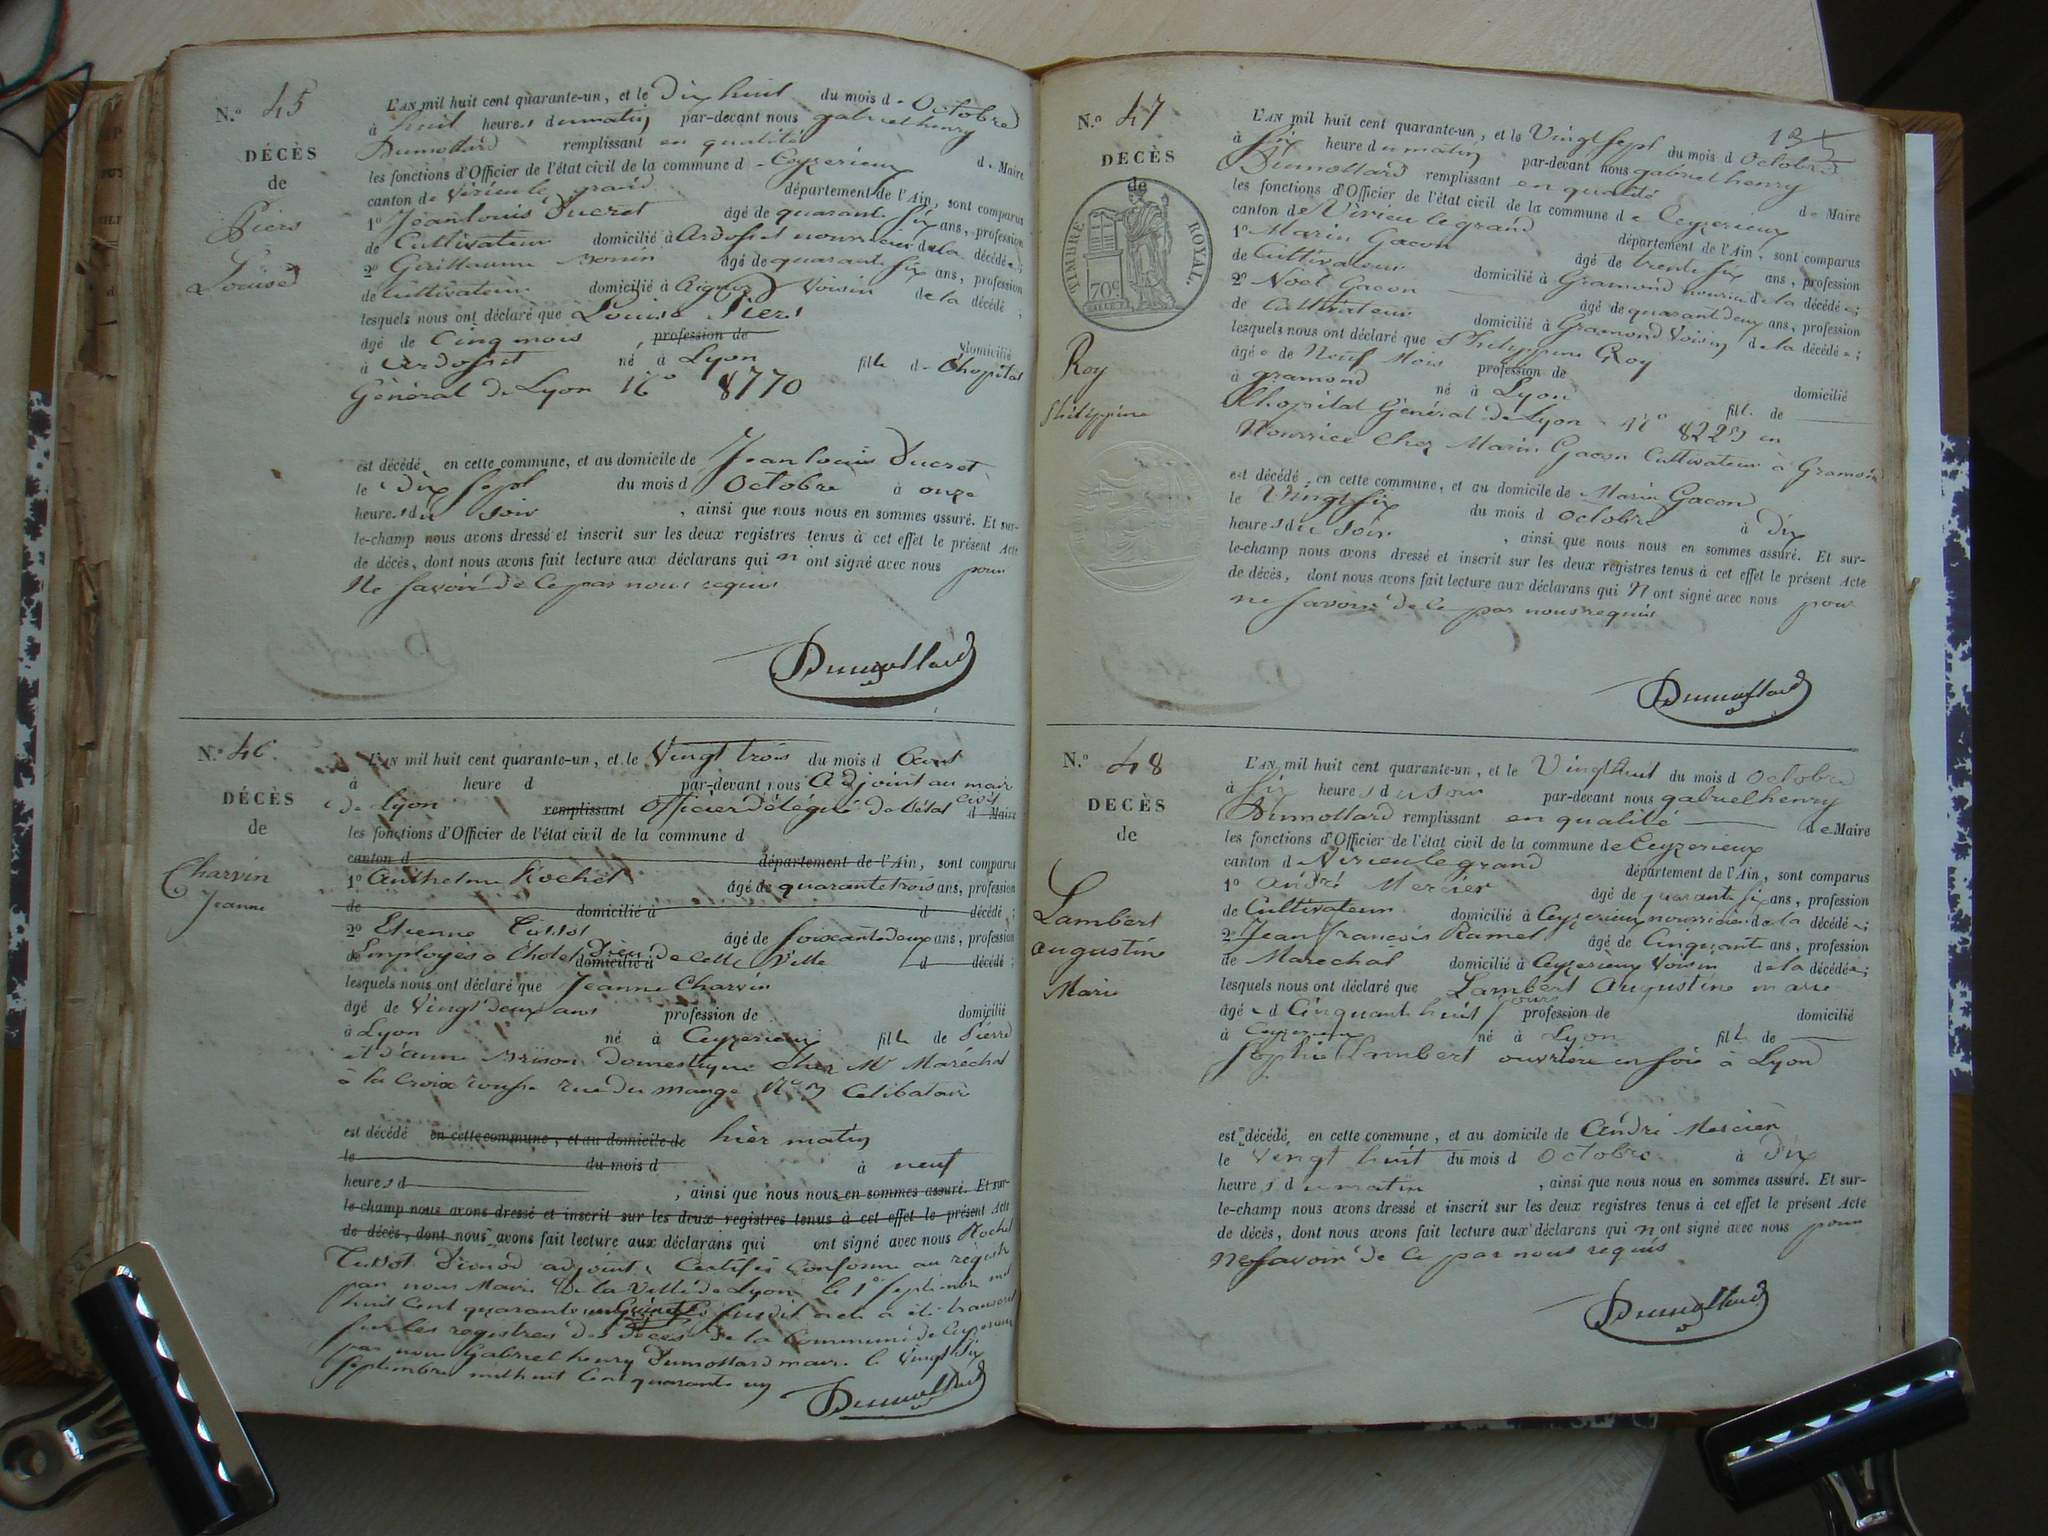 N.o 45
DÉCÈS
de
Piers
Louise
L'AN mil huit cent quarante-un, et le Dix huit du mois d. Octobre
à huit heures du matin par-devant nous gabriel henry
Dumollard remplissant en qualité d. Maire
les fonctions d'Officier de l'état civil de la commune d. Ceyzerieux
canton de Virieu le grand département de l'Ain, sont comparus
1o Jean louis Ducret âgé de quarante six ans, profession
de Cultivateur domicilié à Ardosset nourricier de la décédée;
2o Guillaume Monin âgé de quarante six ans, profession
de Cultivateur domicilié à Aignoz Voisin de la décédé;
lesquels nous ont déclaré que Louise Piers
âgé de Cinq mois, profession de domicilié
à Ardosset né à Lyon fille d. l'hopital
Général de Lyon No 8770
est décédé en cette commune, et au domicile de Jean louis Ducret
le Dix sept du mois d Octobre à onze
heures du soir, ainsi que nous nous en sommes assuré. Et sur-
le-champ nous avons dressé et inscrit sur les deux registres tenus à cet effet le présent Acte
de décès, dont nous avons fait lecture aux déclarans qui n'ont signé avec nous pour
Ne savoir de ce par nous requis
Dumollard
N.o 46
DÉCÈS
de
Charvin
Jeanne
L'AN mil huit cent quarante-un, et le Vingt trois du mois d Aout
à heure d par-devant nous Adjoint au maire
de Lyon remplissant officier délégué de l'état civil d Maire
les fonctions d'Officier de l'état civil de la commune d
canton d département de l'Ain, sont comparus
1o Anthelme Rochet âgé de quarante trois ans, profession
de domicilié à d décédé;
2o Etienne Tissot âgé de soixante deux ans, profession
de Employés a l'hotel Dieu domicilié à de cette Ville d décédé;
lesquels nous ont déclaré que Jeanne Charvin
âgé de Vingt deux ans profession de domicilié
à Lyon né à Ceyzerieux fille de Pierre
et d'anne Domestique chez Mr Maréchal
à la Croix rousse rue du No Celibataire
est décédé en cette commune, et au domicile de hier matin
le du mois d à neuf
heures d, ainsi que nous nous en sommes assuré. Et sur-
le-champ nous avons dressé et inscrit sur les deux registres tenus à cet effet le présent Acte
de décès, dont nous avons fait lecture aux déclarans qui ont signé avec nous Rochet
Tissot adjoint, Certifié conforme au registre
par nous Maire de la Ville de Lyon le 1o septembre mil
huit cent quarante un susdit acte a été transcrit
sur les registres des décès de la Commune de Ceyzerieux
par nous Gabriel henry Dumollard maire le Vingt six
septembre mil huit cent quarante un
Dumollard
135
N.o 47
DÉCÈS
de
TIMBRE ROYAL.
70c
Roy
Philippine
L'AN mil huit cent quarante-un, et le Vingt sept du mois d Octobre
à six heure du matin par-devant nous gabriel henry
Dumollard remplissant en qualité d. Maire
les fonctions d'Officier de l'état civil de la commune d. Ceyzerieux
canton de Virieu le grand département de l'Ain, sont comparus
1o Marin Gacon âgé de trente six ans, profession
de Cultivateur domicilié à Gramond nourricier de la décédée;
2o Noel Gacon âgé de quarante deux ans, profession
de Cultivateur domicilié à Gramond Voisin de la décédée;
lesquels nous ont déclaré que Philippine Roy
âgée de Neuf Mois profession de domicilié
à gramond né à Lyon fille de
l'hopital Général de Lyon No en
Nourrice chez Marin Gacon Cultivateur à Gramond
est décédé en cette commune, et au domicile de Marin Gacon
le Vingt six du mois d octobre à Dix
heures du Soir, ainsi que nous nous en sommes assuré. Et sur-
le-champ nous avons dressé et inscrit sur les deux registres tenus à cet effet le présent Acte
de décès, dont nous avons fait lecture aux déclarans qui N'ont signé avec nous pour
ne savoir de ce par nous requis
Dumollard
N.o 48
DÉCÈS
de
Lambert
augustine
Marie
L'AN mil huit cent quarante-un, et le Vingt huit du mois d Octobre
à six heures du soir par-devant nous gabriel henry
Dumollard remplissant en qualité d. Maire
les fonctions d'Officier de l'état civil de la commune de Ceyzerieux
canton d Virieu le grand département de l'Ain, sont comparus
1o André Mercier âgé de quarante six ans, profession
de Cultivateur domicilié à Ceyzerieux nourricier de la décédée;
2o Jean françois Ramel âgé de Cinquante ans, profession
de Marechal domicilié à Ceyzerieux Voisin de la décédée;
lesquels nous ont déclaré que Lambert Augustine marie
âgée d Cinquante huit jours profession de domicilié
à Ceyzerieux né à Lyon fille de
Sophie Lambert ouvrière en soie à Lyon
est décédé en cette commune, et au domicile de André Mercier
le Vingt huit du mois d Octobre à Dix
heures du matin, ainsi que nous nous en sommes assuré. Et sur-
le-champ nous avons dressé et inscrit sur les deux registres tenus à cet effet le présent Acte
de décès, dont nous avons fait lecture aux déclarans qui n'ont signé avec nous pour
Ne savoir de ce par nous requis
Dumollard